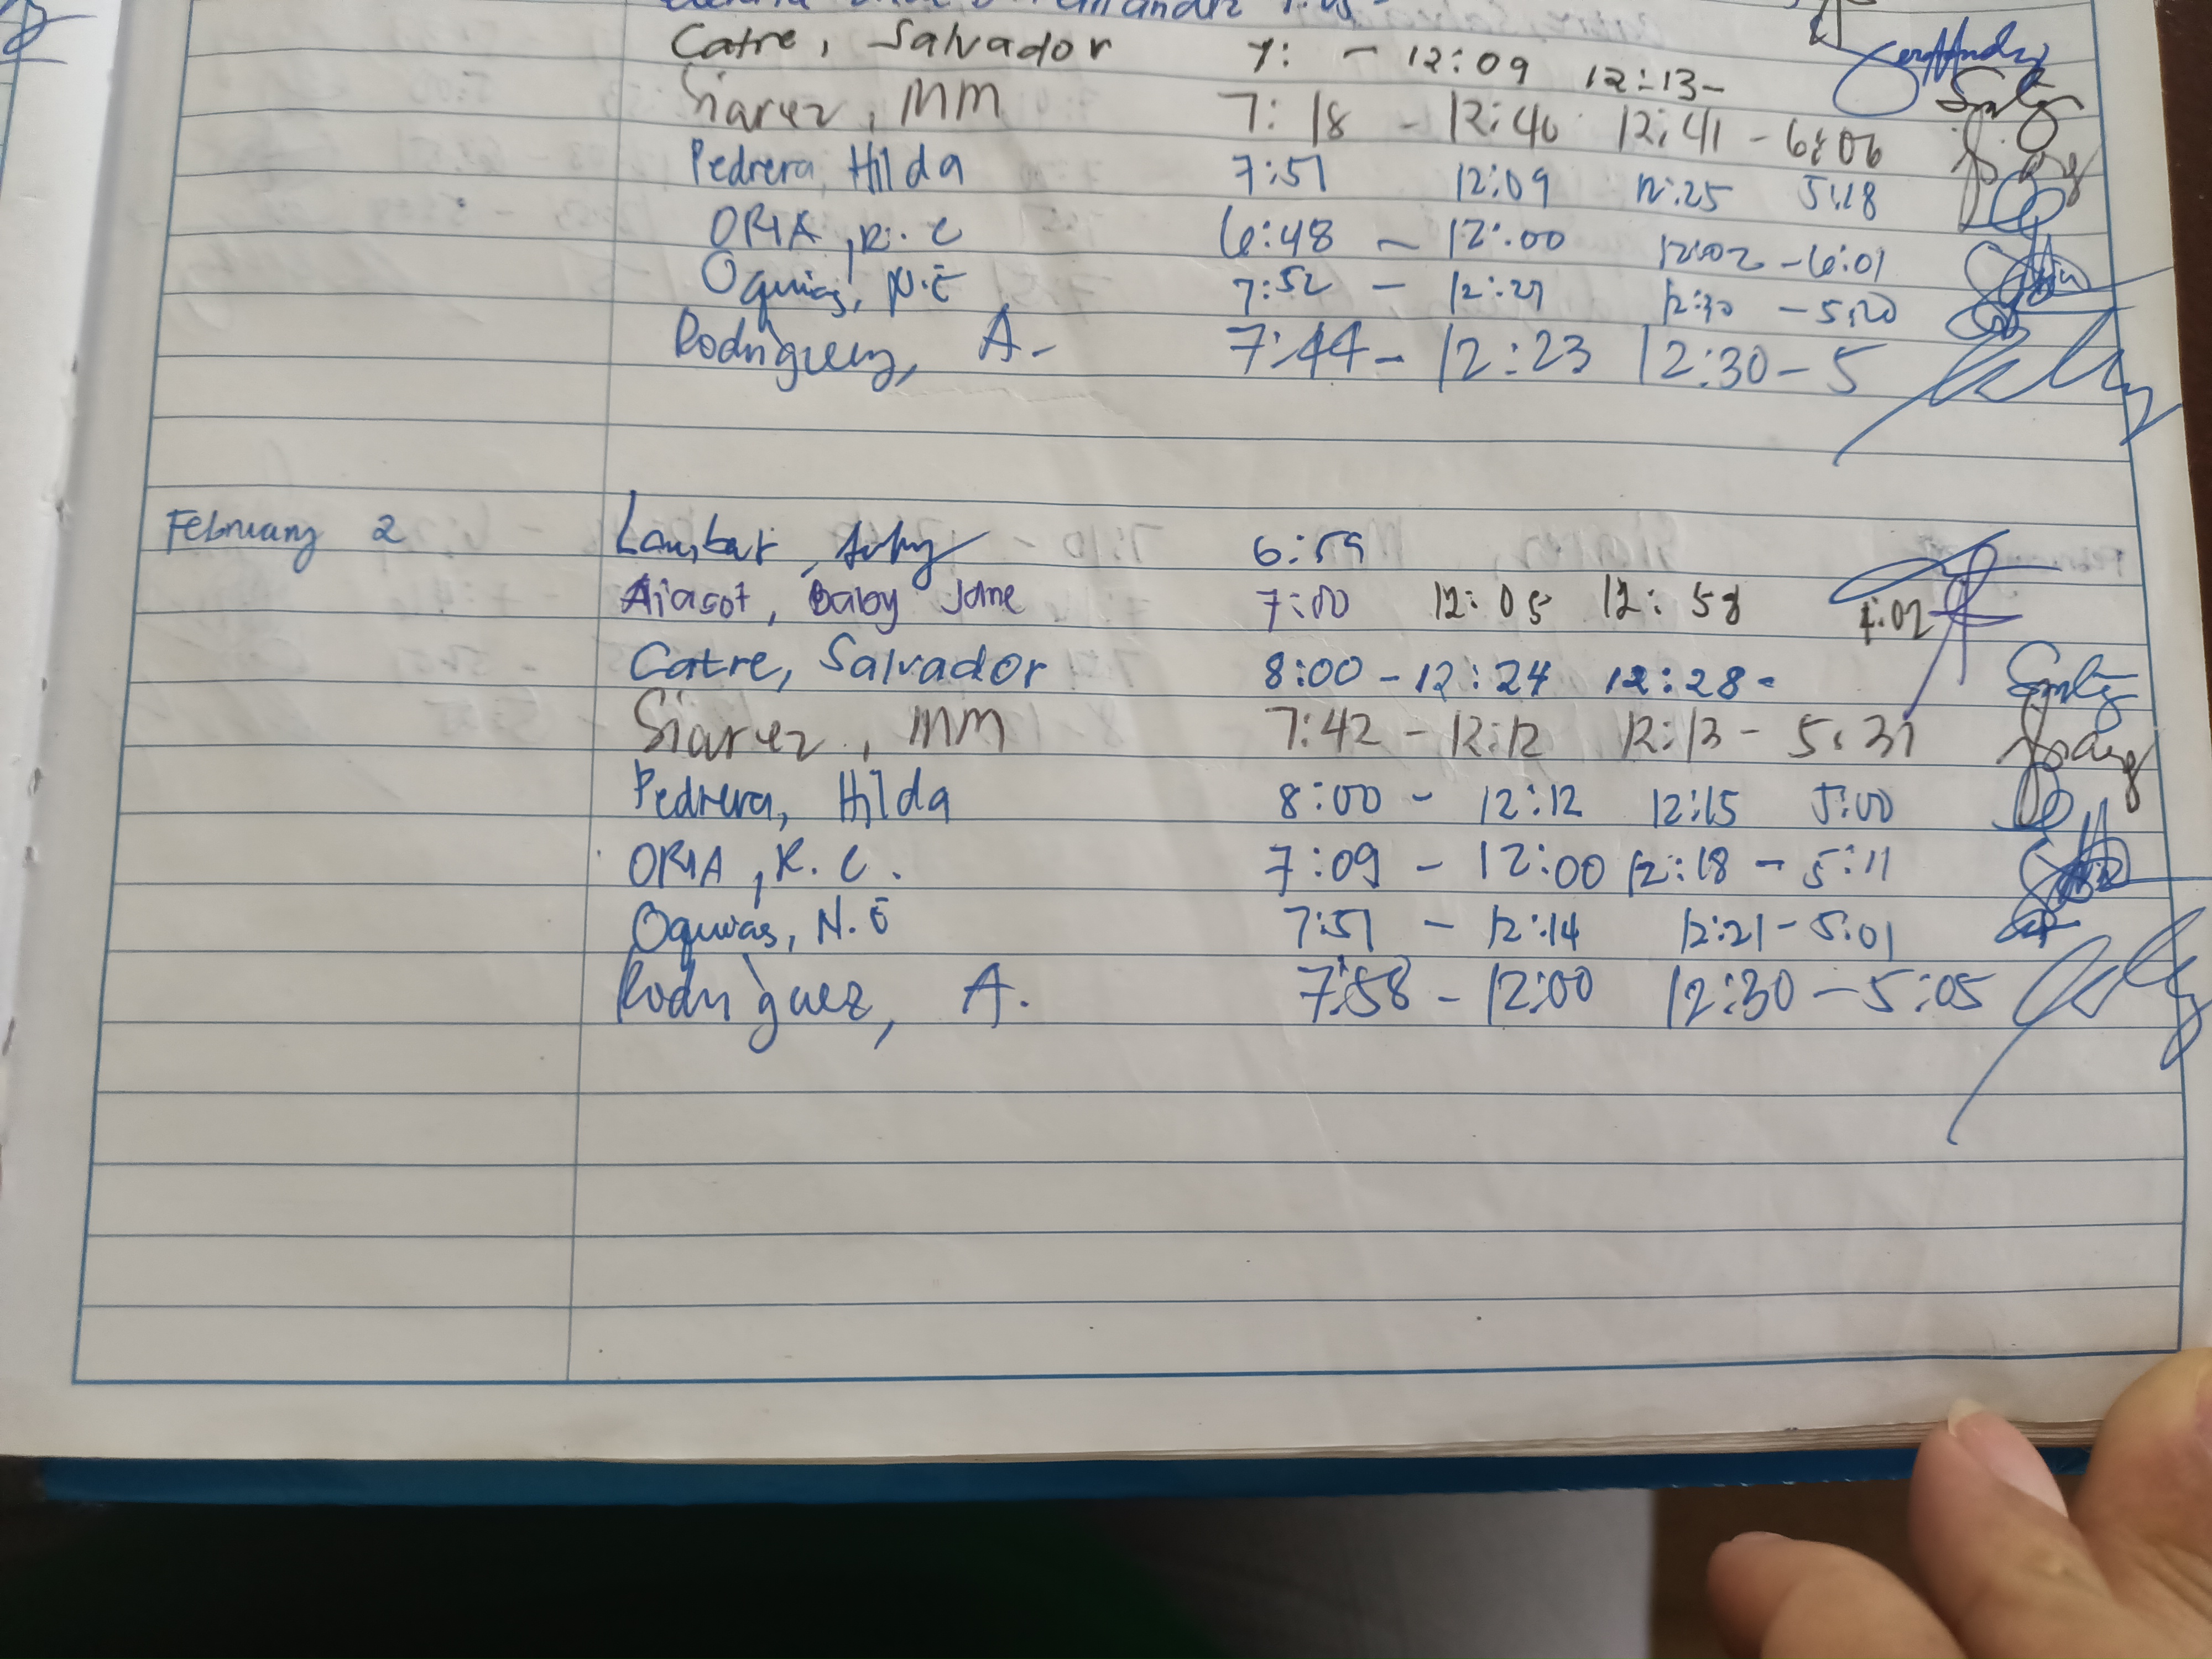 Catre, Salvador 7: - 12:09 12:13-
Siarez, MM 7:18 - 12:40 12:41 - 6:06
Pedrera, Hilda 7:51 12:09 12:25 5:18
ORIA, R. C 6:48 - 12:00 12:02 - 6:01
Oquias, N.E 7:52 - 12:27 12:30 - 5:20
Rodriguez, A. 7:44 - 12:23 12:30 - 5
February 2 6:59
Aiasot, Baby Jane 7:00 12:05 12:58
Catre, Salvador 8:00 - 12:24 12:28 -
Siarez, MM 7:42 - 12:12 12:13 - 5:31
Pedrera, Hilda 8:00 - 12:12 12:15 5:00
ORIA, R. C. 7:09 - 12:00 12:18 - 5:11
Oquias, N.E 7:51 - 12:14 12:21 - 5:01
Rodriguez, A. 7:58 - 12:00 12:30 - 5:05